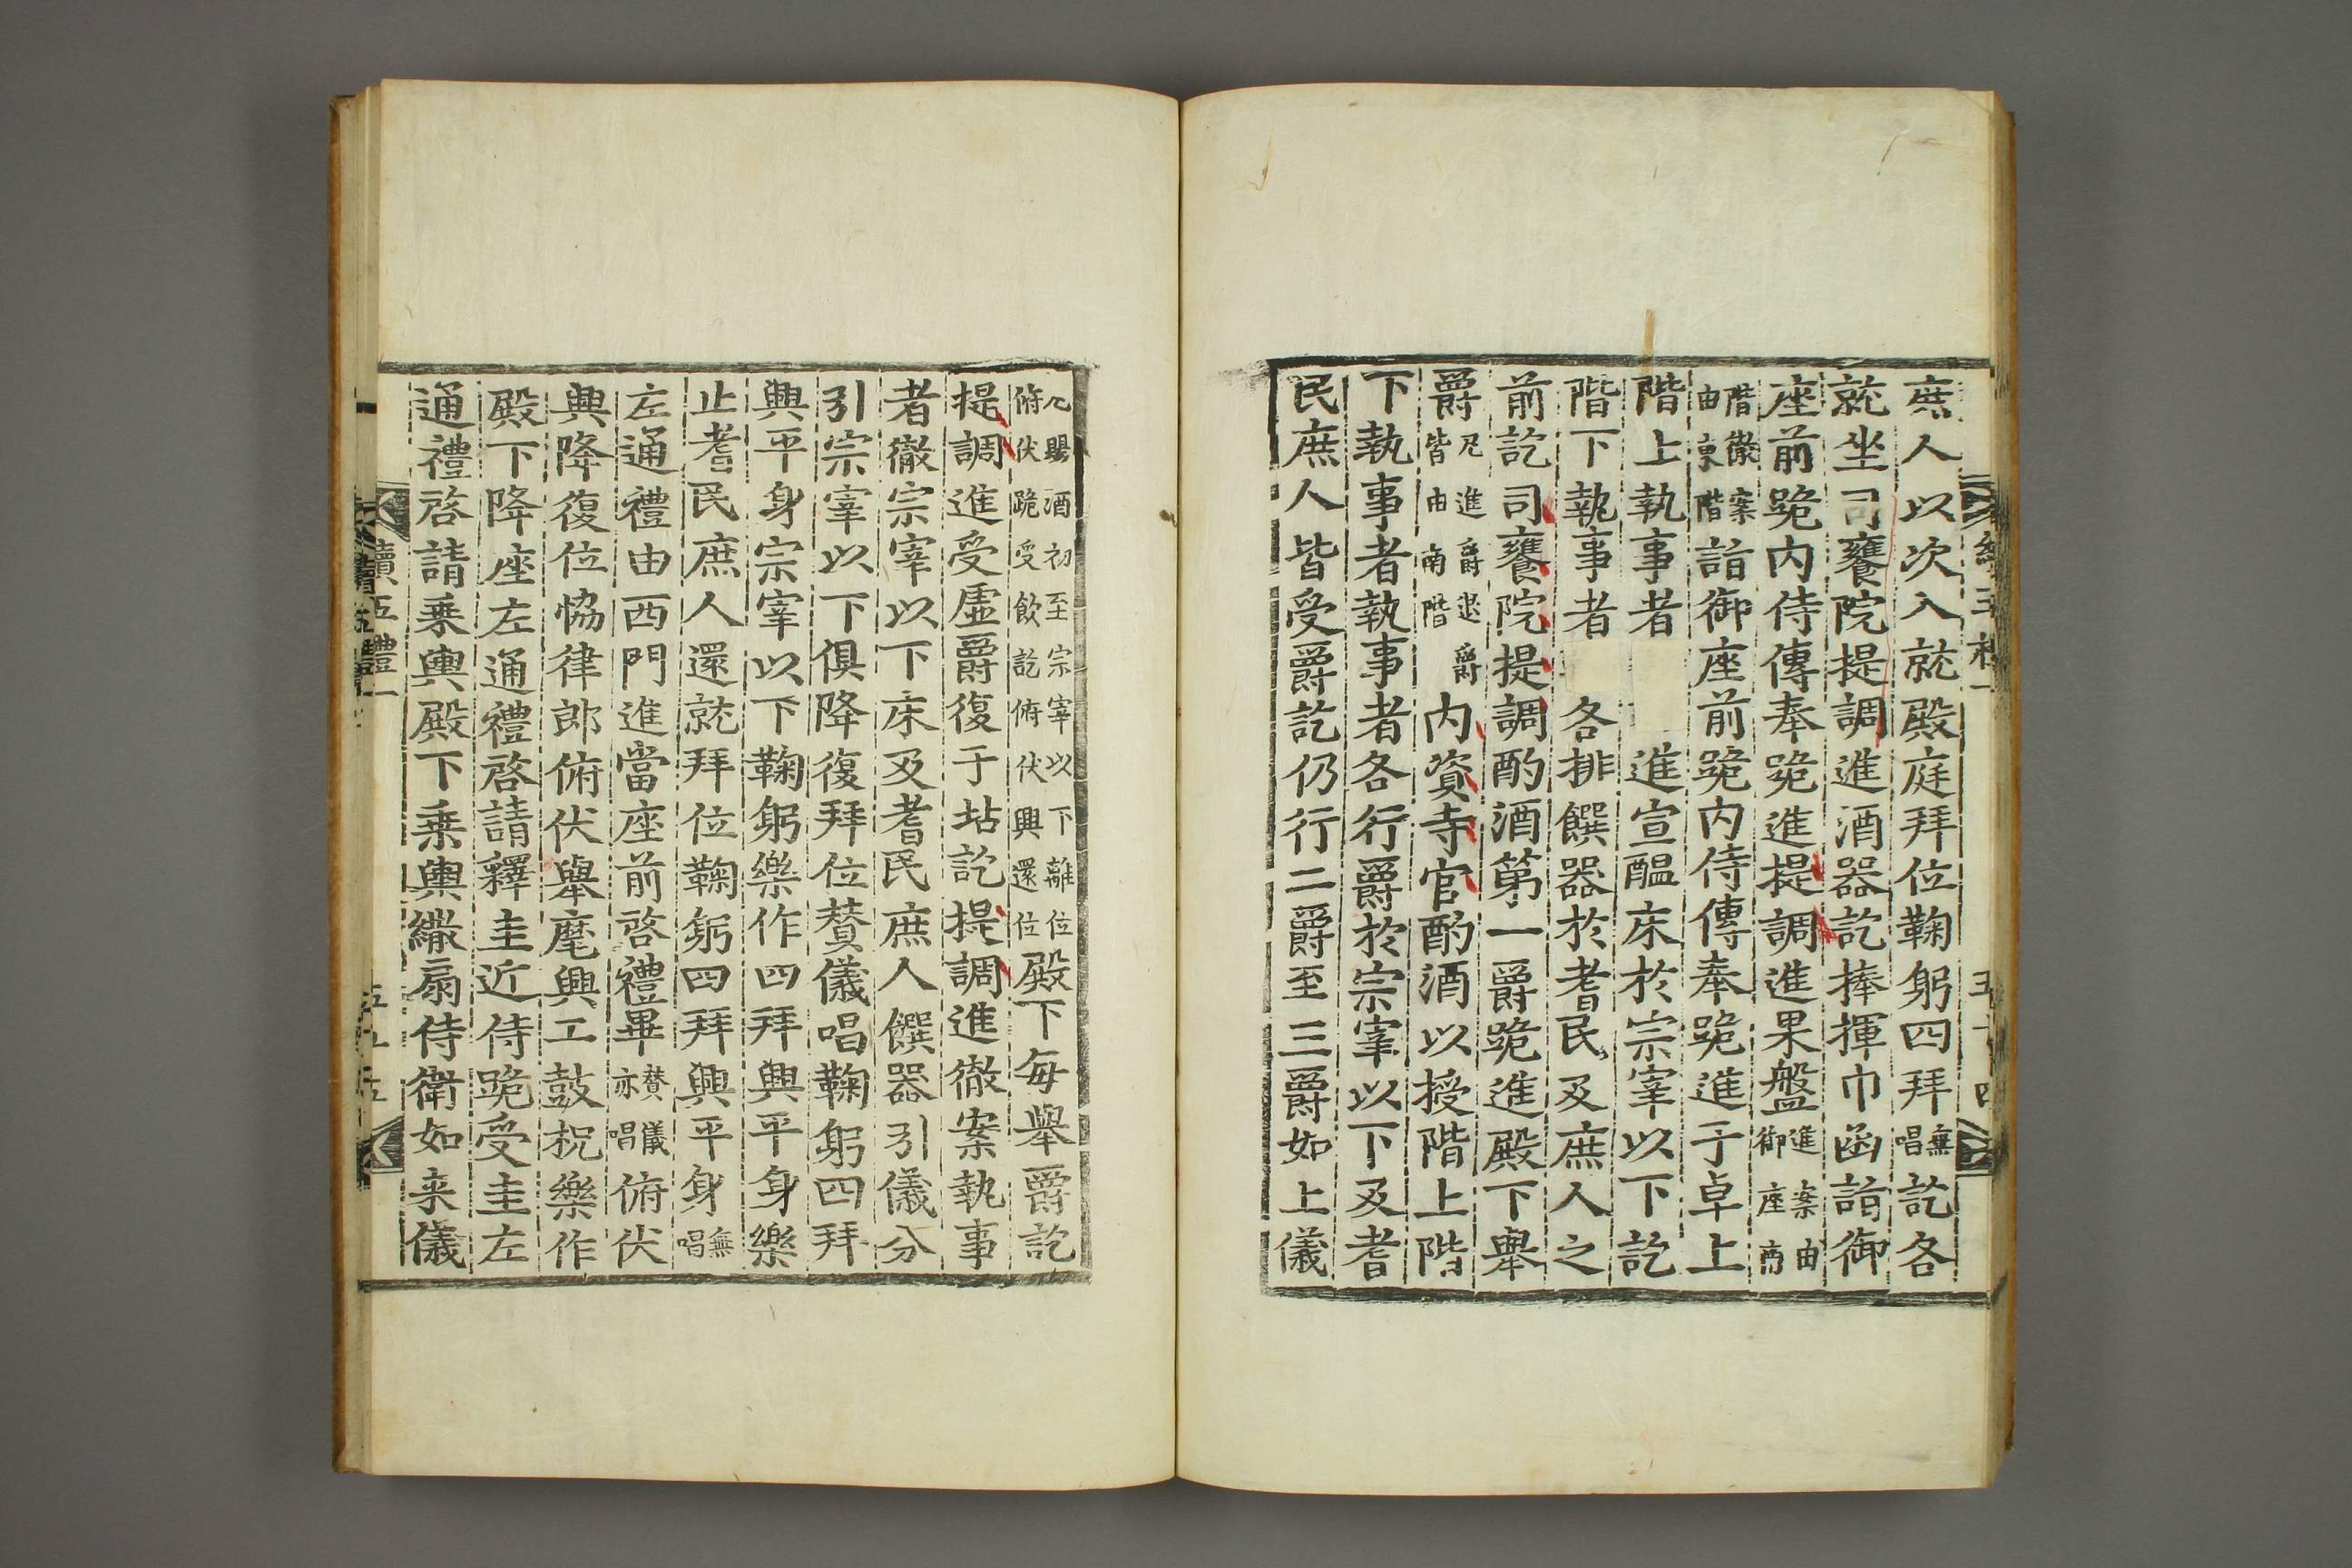 庶人以次入就殿庭拜位鞠躬四拜無唱訖各
就坐司饔院提調進酒器訖捧揮巾函詣御
座前跪內侍傳奉跪進提調進果盤進案由御座南
階徹案由東階詣御座前跪內侍傳奉跪進于卓上
階上執事者進宣醞床於宗宰以下訖
階下執事者各排饌器於耆民及庶人之
前訖司饔院提調酌酒第一爵跪進殿下舉
爵凡進爵退爵皆由南階內資寺官酌酒以授階上階
下執事者執事者各行爵於宗宰以下及耆
民庶人皆受爵訖仍行二爵至三爵如上儀
凡賜酒初至宗宰以下離位俯伏跪受飮訖俯伏興還位殿下每舉爵訖
提調進受虛爵復于坫訖提調進徹案執事
者徹宗宰以下床及耆民庶人饌器引儀分
引宗宰以下俱降復拜位贊儀唱鞠躬四拜
興平身宗宰以下鞠躬樂作四拜興平身樂
止耆民庶人還就拜位鞠躬四拜興平身無唱
左通禮由西門進當座前啓禮畢贊儀亦唱俯伏
興降復位恊律郎俯伏舉麾興工鼓柷樂作
殿下降座左通禮啓請釋圭近侍跪受圭左
通禮啓請乗輿殿下乗輿繖扇侍衛如来儀
續五禮一